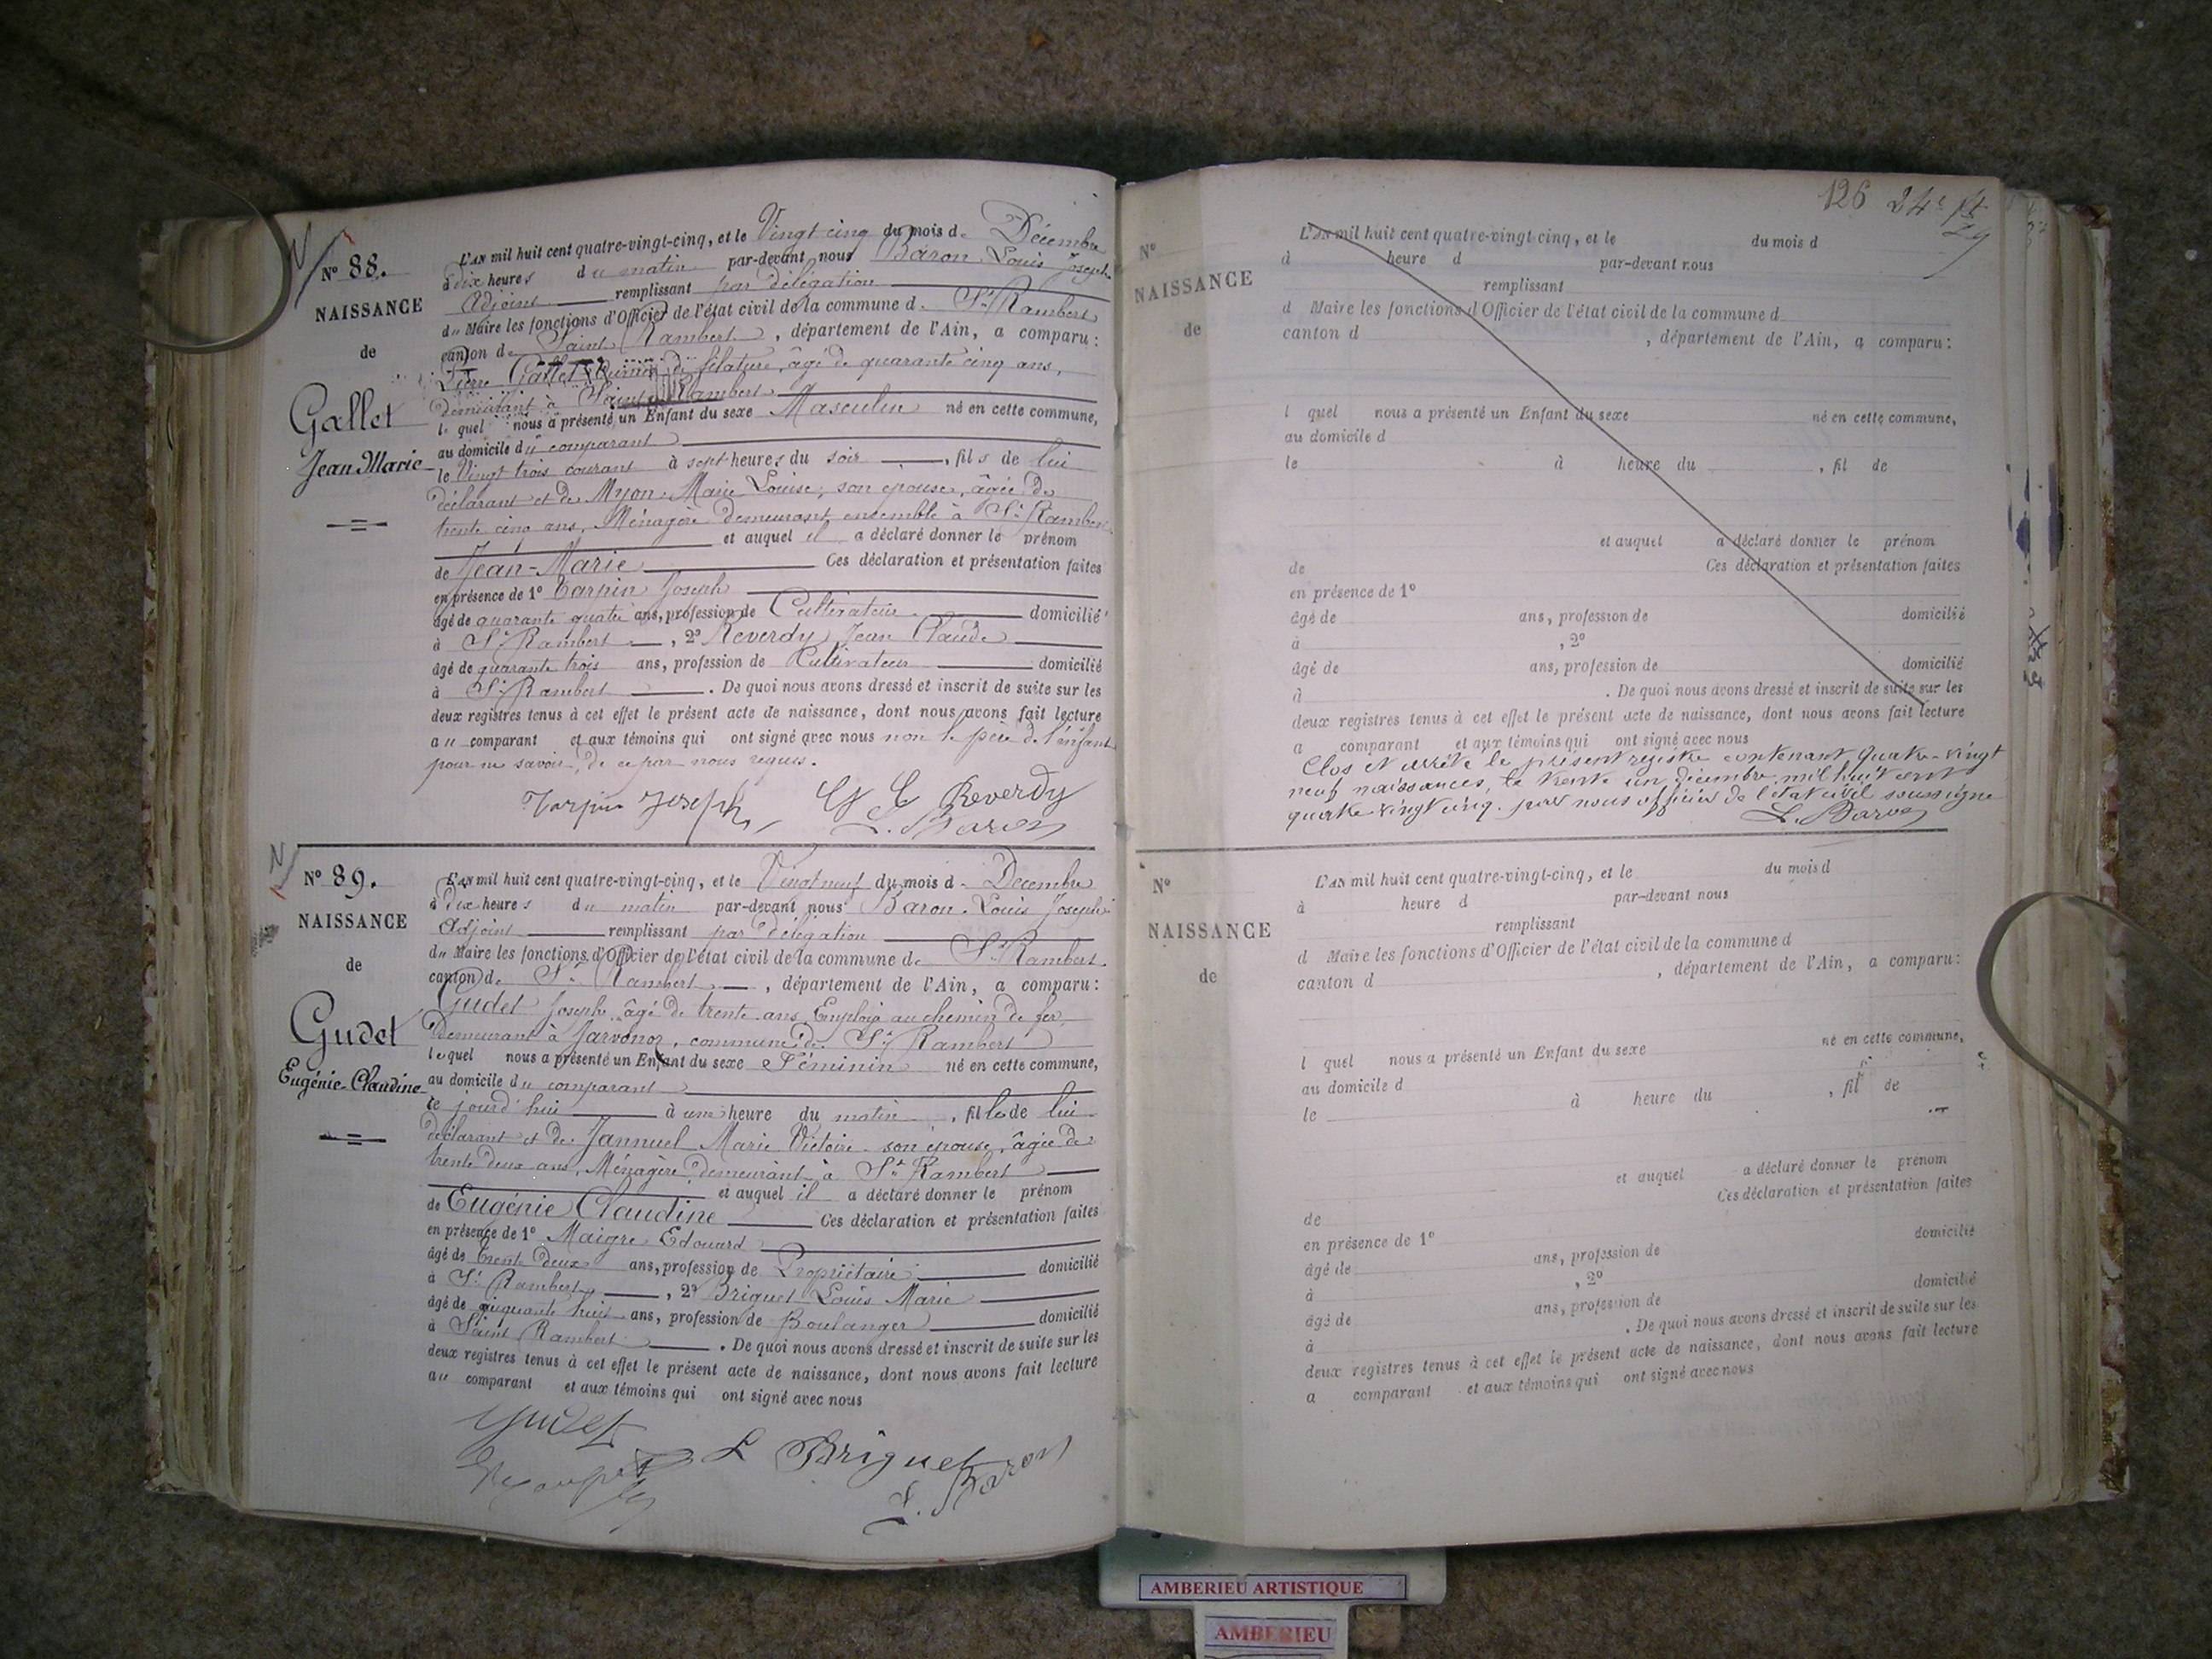 N
N° 88.
NAISSANCE
de
Gallet
Jean Marie
L'AN mil huit cent quatre-vingt-cinq, et le Vingt cinq du mois de Décembre
à dix heures du matin par-devant nous Baron Louis Joseph
Adjoint remplissant par délégation
du Maire les fonctions d'Officier de l'état civil de la commune de St Rambert
canton de Saint Rambert, département de l'Ain, a comparu:
Pierre Gallet, de filature, âgé de quarante cinq ans,
demeurant à Saint Rambert
lequel nous a présenté un Enfant du sexe Masculin né en cette commune,
au domicile du comparant
le Vingt trois courant à sept heures du soir, fils de lui
déclarant et de Myon Marie Louise, son épouse, âgée de
trente cinq ans, Ménagère demeurant ensemble à St Rambert
et auquel il a déclaré donner le prénom
de Jean-Marie Ces déclaration et présentation faites
en présence de 1° Tarpin Joseph
âgé de quarante quatre ans, profession de Cultivateur domicilié
à St Rambert, 2° Reverdy Jean Claude
âgé de quarante trois ans, profession de Cultivateur domicilié
à St Rambert. De quoi nous avons dressé et inscrit de suite sur les
deux registres tenus à cet effet le présent acte de naissance, dont nous avons fait lecture
au comparant et aux témoins qui ont signé avec nous non le père de l'enfant
pour ne savoir, de ce par nous requis.
Tarpin Joseph Reverdy
L. Baron
N
N° 89.
NAISSANCE
de
Gudet
Eugénie-Claudine
L'AN mil huit cent quatre-vingt-cinq, et le Vingt neuf du mois de Décembre
à dix heures du matin par-devant nous Baron Louis Joseph
Adjoint remplissant par délégation
du Maire les fonctions d'Officier de l'état civil de la commune de St Rambert
canton de St Rambert, département de l'Ain, a comparu:
Gudet Joseph âgé de trente ans Employé au chemin de fer
demeurant à Javornoz, commune de St Rambert
lequel nous a présenté un Enfant du sexe Féminin né en cette commune,
au domicile du comparant
ce jourd'hui à une heure du matin, fille de lui
déclarant et de Jannuel Marie Victoire son épouse, âgée de
trente deux ans, Ménagère demeurant à St Rambert
et auquel il a déclaré donner le prénom
de Eugénie Claudine Ces déclaration et présentation faites
en présence de 1° Maigre Edouard
âgé de trente deux ans, profession de Propriétaire domicilié
à St Rambert, 2° Briguet Louis Marie
âgé de cinquante huit ans, profession de Boulanger domicilié
à Saint Rambert. De quoi nous avons dressé et inscrit de suite sur les
deux registres tenus à cet effet le présent acte de naissance, dont nous avons fait lecture
au comparant et aux témoins qui ont signé avec nous
Gudet
L Briguet
L. Baron
126 24e
N°
NAISSANCE
de
L'AN mil huit cent quatre-vingt cinq, et le du mois d
à heure d par-devant nous
remplissant
d Maire les fonctions d'Officier de l'état civil de la commune d
canton d , département de l'Ain, a comparu:
l quel nous a présenté un Enfant du sexe né en cette commune,
au domicile d
le à heure du , fil de
et auquel a déclaré donner le prénom
de Ces déclaration et présentation faites
en présence de 1°
âgé de ans, profession de domicilié
à , 2°
âgé de ans, profession de domicilié
à . De quoi nous avons dressé et inscrit de suite sur les
deux registres tenus à cet effet le présent acte de naissance, dont nous avons fait lecture
a comparant et aux témoins qui ont signé avec nous
Clos et arrêté le présent registre contenant quatre-vingt
neuf naissances, le trente un décembre mil huit cent
quatre vingt cinq. par nous officier de l'état civil soussigné
L. Baron
N°
NAISSANCE
de
L'AN mil huit cent quatre-vingt-cinq, et le du mois d
à heure d par-devant nous
remplissant
d Maire les fonctions d'Officier de l'état civil de la commune d
canton d , département de l'Ain, a comparu:
l quel nous a présenté un Enfant du sexe né en cette commune,
au domicile d
le à heure du , fil de
et auquel a déclaré donner le prénom
de Ces déclaration et présentation faites
en présence de 1°
âgé de ans, profession de domicilié
à , 2°
âgé de ans, profession de domicilié
à . De quoi nous avons dressé et inscrit de suite sur les
deux registres tenus à cet effet le présent acte de naissance, dont nous avons fait lecture
a comparant et aux témoins qui ont signé avec nous
AMBERIEU ARTISTIQUE
AMBERIEU